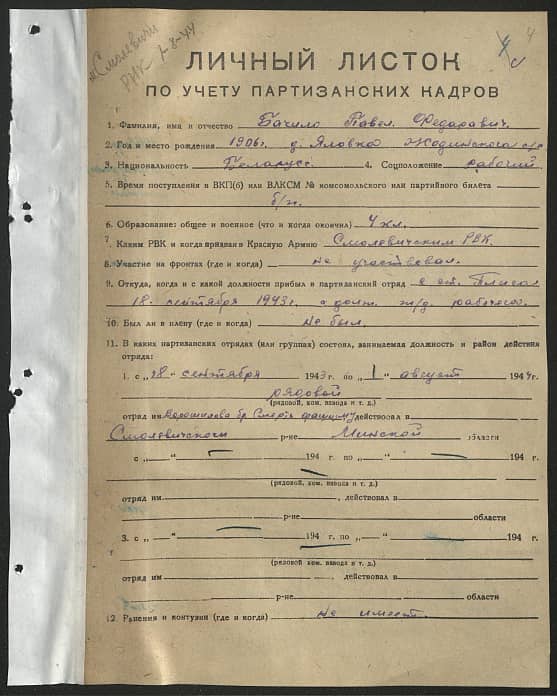 Смолевичи
РИК 1-8-44
4
ЛИЧНЫЙ ЛИСТОК
ПО УЧЕТУ ПАРТИЗАНСКИХ КАДРОВ
1. Фамилия, имя и отчество Бачило Павел Федаравич.
2. Год и место рождения 1906г. д. Яловка Жодинского с/с
3. Национальность Беларус 4. Соцположение рабочий
5. Время поступления в ВКП(б) или ВЛКСМ № комсомольского или партийного билета
б/п.
6. Образование: общее и военное (что и когда окончил) 4 кл.
7. Каким РВК и когда призван в Красную Армию Смолевичским РВК.
8. Участие на фронтах (где и когда) не участвовал.
9. Откуда, когда и с какой должности прибыл в партизанский отряд с ст.
18 сентября 1943г. с долж. ж/д. рабочего.
10. Был ли в плену (где и когда) не был.
11. В каких партизанских отрядах (или группах) состоял, занимаемая должность и район действия
отряда:
1. с „18“ сентября 1943 г. по „1“ август 1944 г.
рядовой
(рядовой, ком. взвода и т. д.)
отряд им Ворошилова бр. Смерть фашизму действовал в
Смолевичском р-не Минской области
с „ — “ 194 г. по „—“ 194 г.
(рядовой, ком. взвода и т. д.)
отряд им. , действовал в
р-не области
3. с „ — “ 194 г. по „—“ 194 г.
(рядовой, ком. взвода и т. д.)
отряд им , действовал в
р-не области
12. Ранения и контузии (где и когда) не имеет.